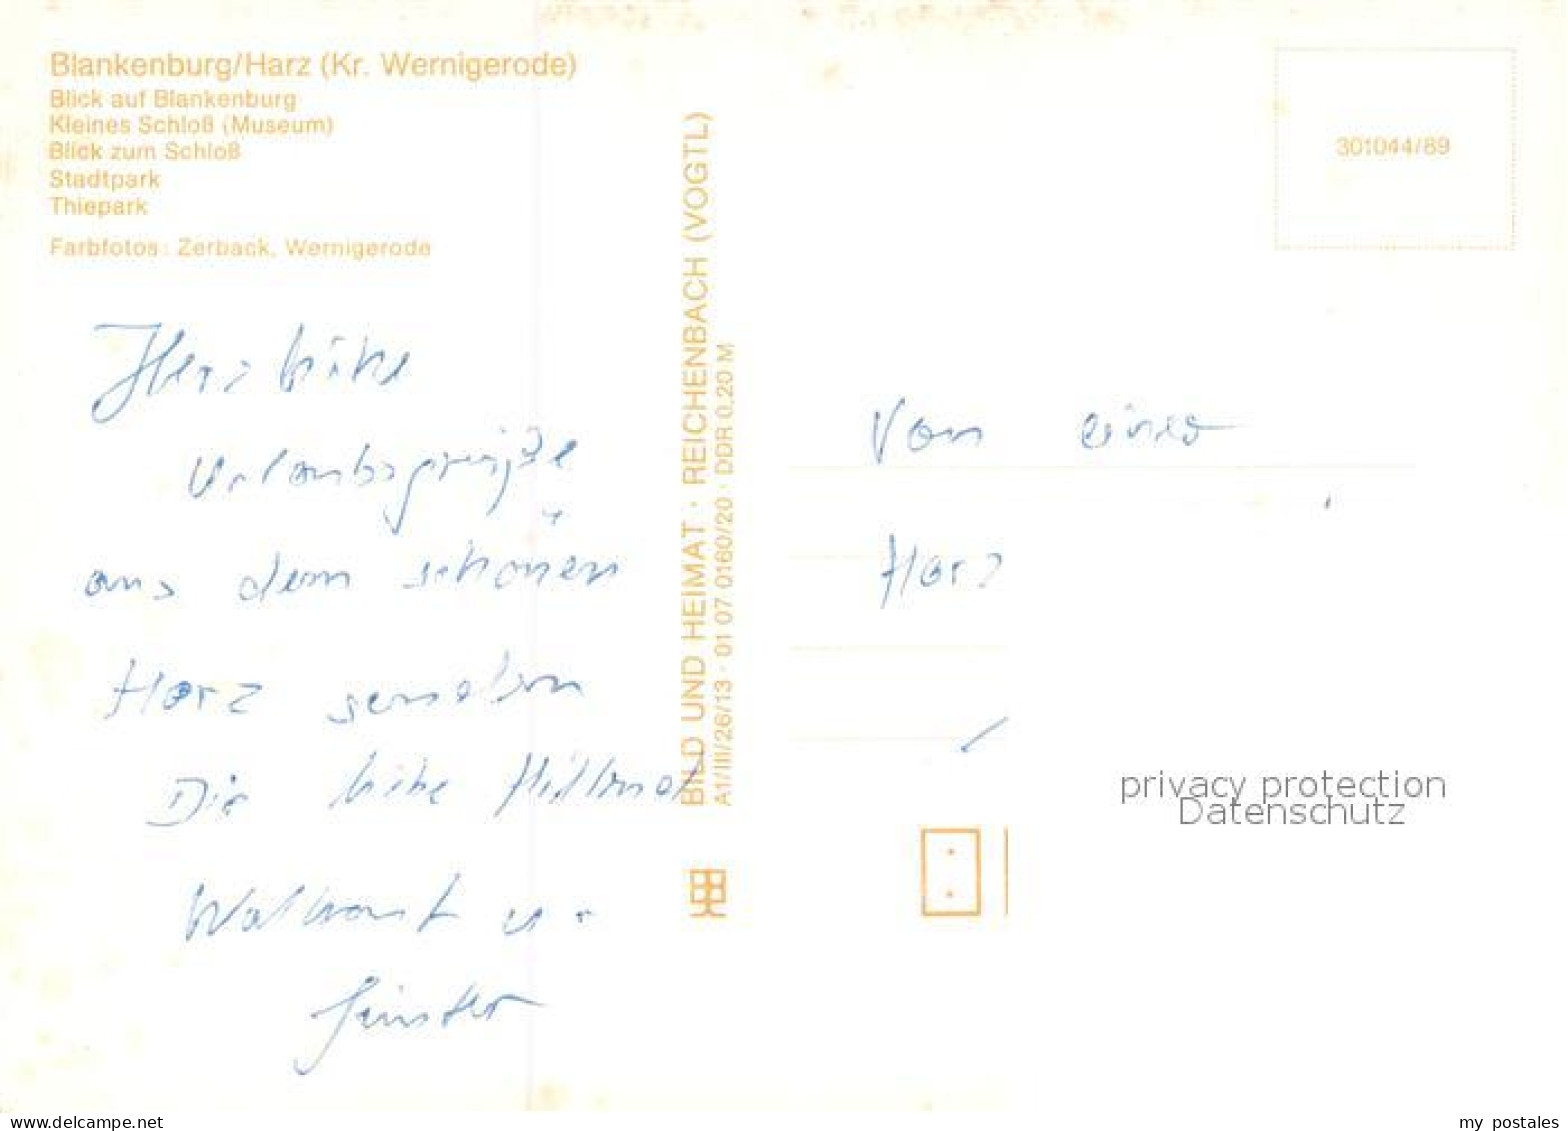 Blankenburg/Harz (Kr. Wernigerode)
Blick auf Blankenburg
Kleines Schloß (Museum)
Blick zum Schloß
Stadtpark
Thiepark
Farbfotos: Zerback, Wernigerode
Herzliche
Urlaubsgrüße
aus dem schönen
Harz senden
Die
u.
BILD UND HEIMAT · REICHENBACH (VOGTL)
A1/III/26/13 · 01 07 0160/20 · DDR 0,20 M
301044/89
Von einer
Harz
privacy protection
Datenschutz
www.delcampe.net
my_postales